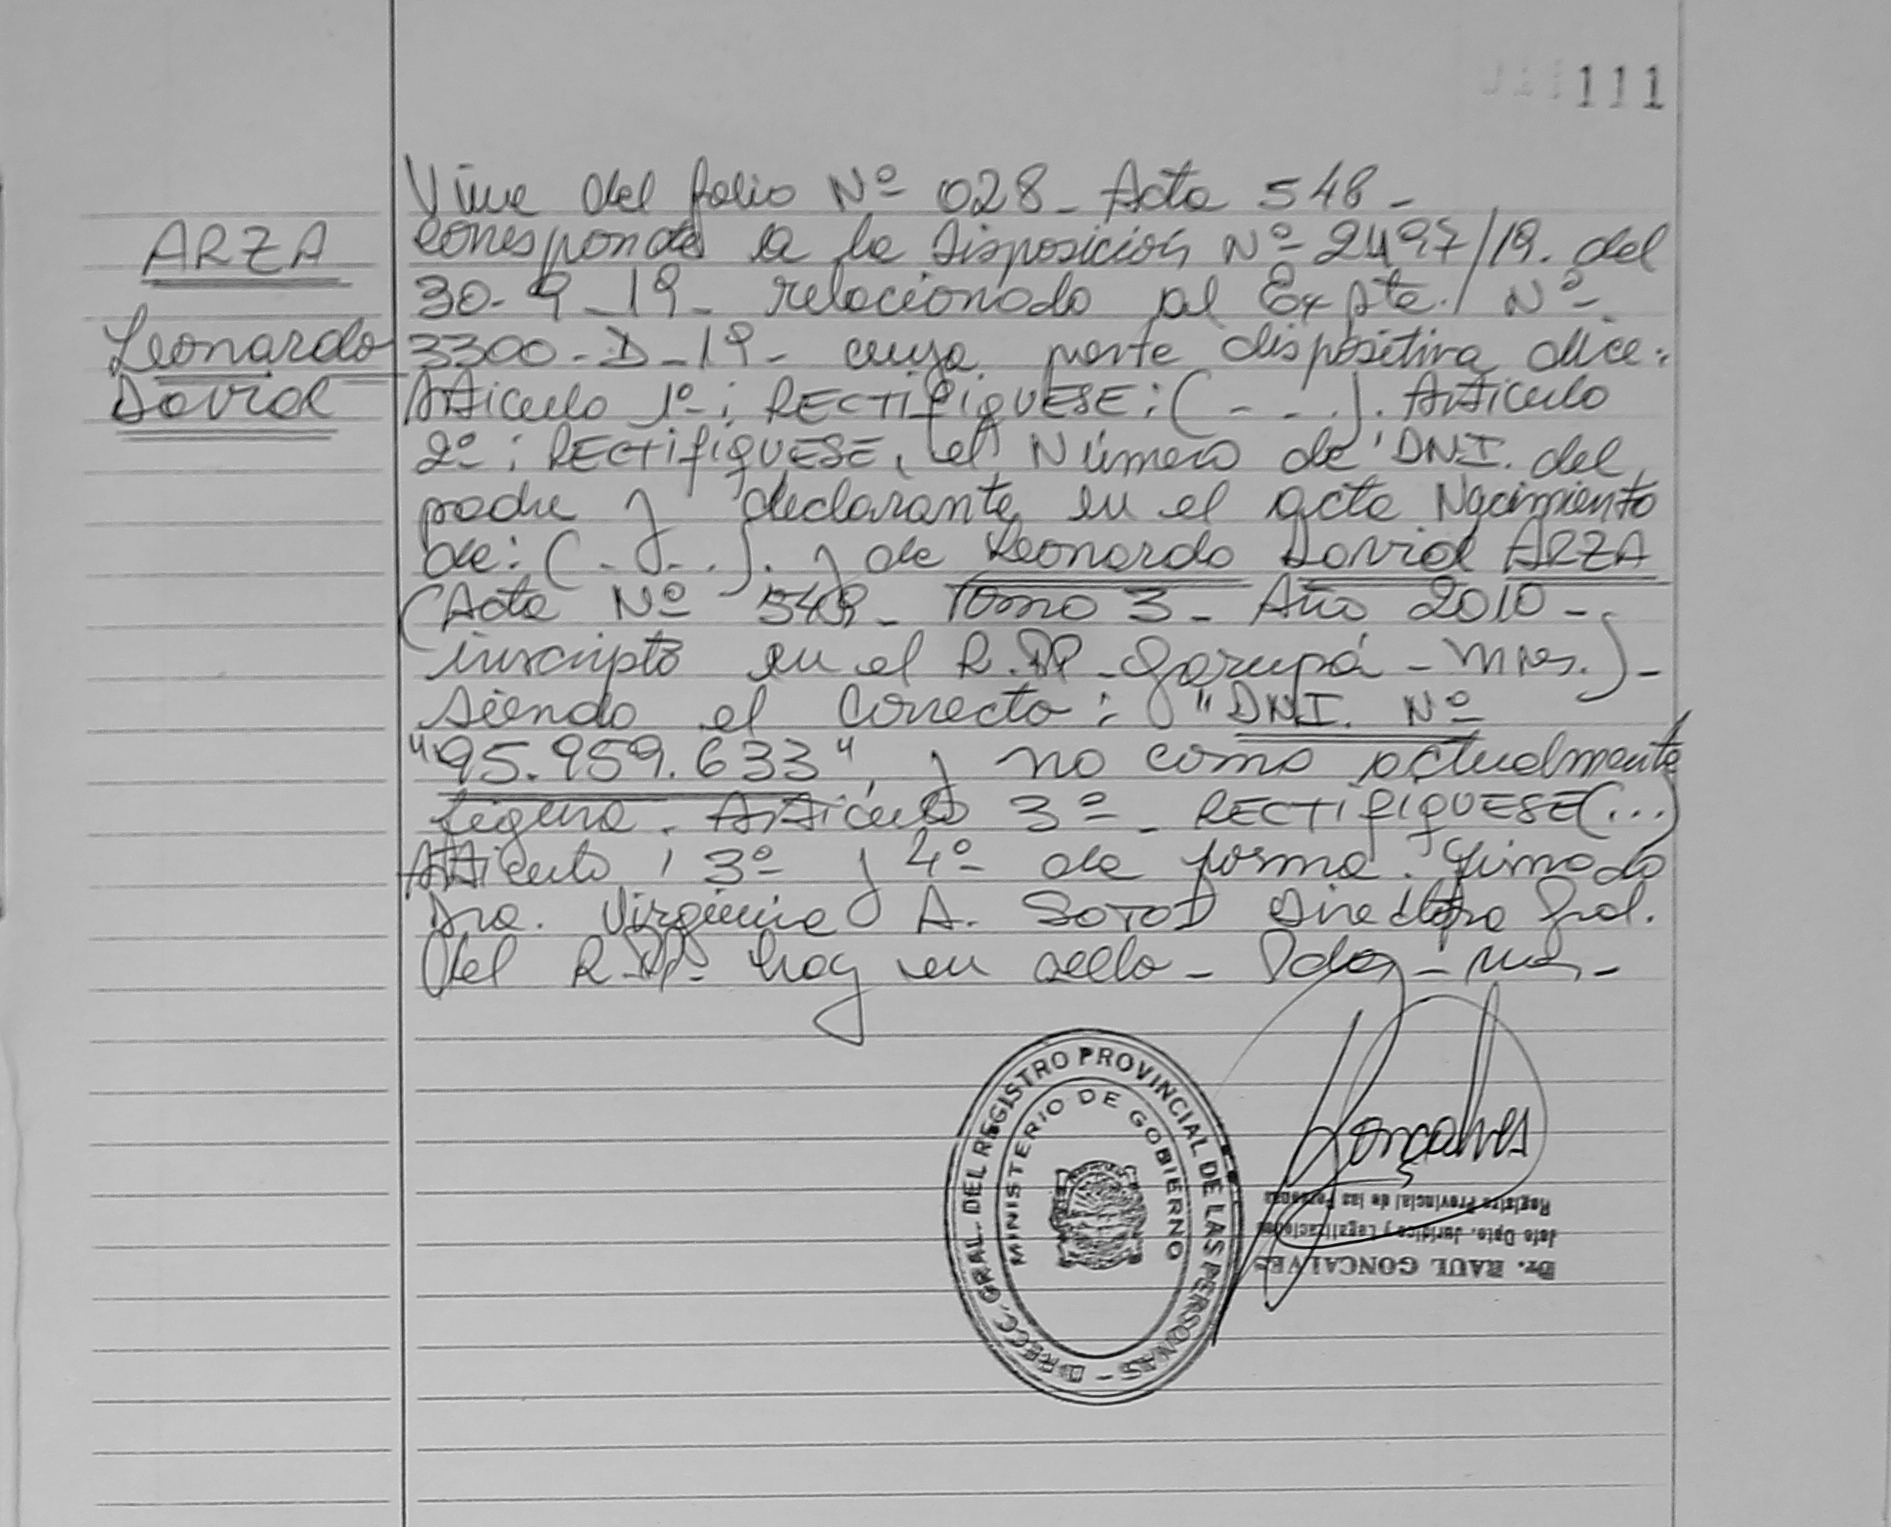 111
ARZA
Leonardo
David
Viene del folio Nº 028 - Acta 548 -
corresponde a la Disposición Nº 2497/19. del
30-9-19- relacionado al Expte. Nº
3300-D-19- cuya parte dispositiva dice:
Artículo 1º: RECTIFIQUESE: (- - .). Artículo
2º: RECTIFIQUESE, el Número de DNI. del
padre y declarante en el acta Nacimiento
de: (. . . .). y de Leonardo David ARZA
(Acta Nº 548- Tomo 3- Año 2010-
inscripto en el R.P.P. Garupá - Mnes.)-
siendo el correcto: "DNI. Nº
"95.959.633", y no como actualmente
figura. Artículo 3º- RECTIFIQUESE(...)
Artículo, 3º y 4º de forma. Firmado
Dra. Virginia A. SOTO Directora Gral.
del R.P.P. hay un sello- Pdas- Mns-
DIRECC. GRAL. DEL REGISTRO PROVINCIAL DE LAS PERSONAS -
MINISTERIO DE GOBIERNO
Goncalves
Dr. RAUL GONCALVES
Jefe Dpto. Jurídico y Legalizaciones
Registro Provincial de las Personas